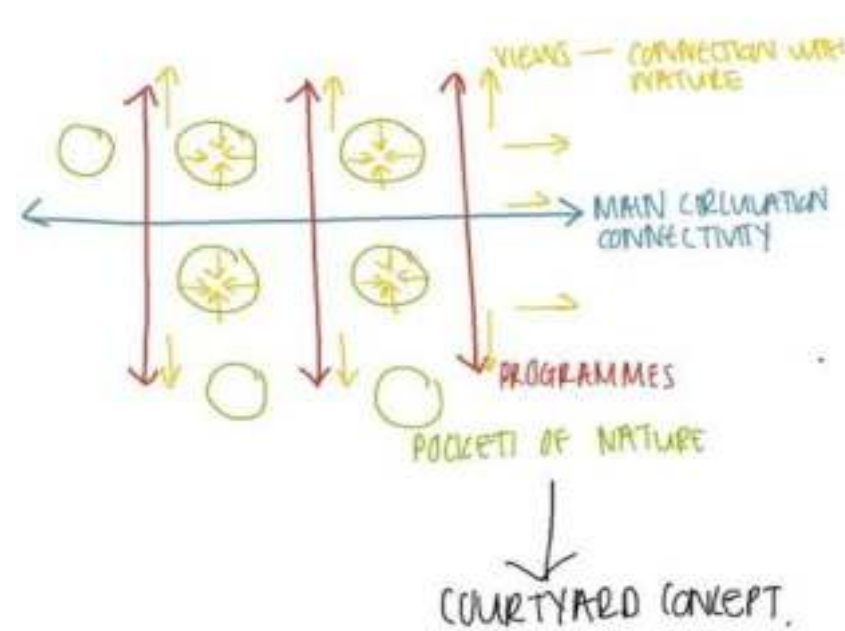 VIEWS — CONNECTION WITH
NATURE
MAIN CIRCULATION
CONNECTIVITY
PROGRAMMES
POCKETS OF NATURE
COURTYARD CONCEPT.